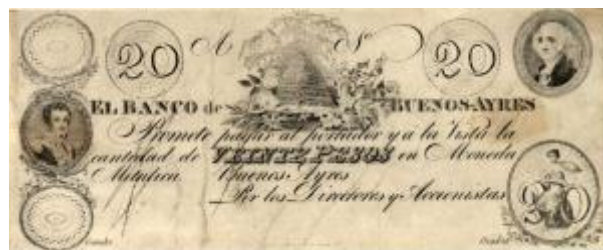 20 A Nº 20
EL BANCO de BUENOS AYRES
Promete pagar al portador y a la Vista la
cantidad de VEINTE PESOS en Moneda
Metalica. Buenos Ayres
Por los Directores y Accionistas
20